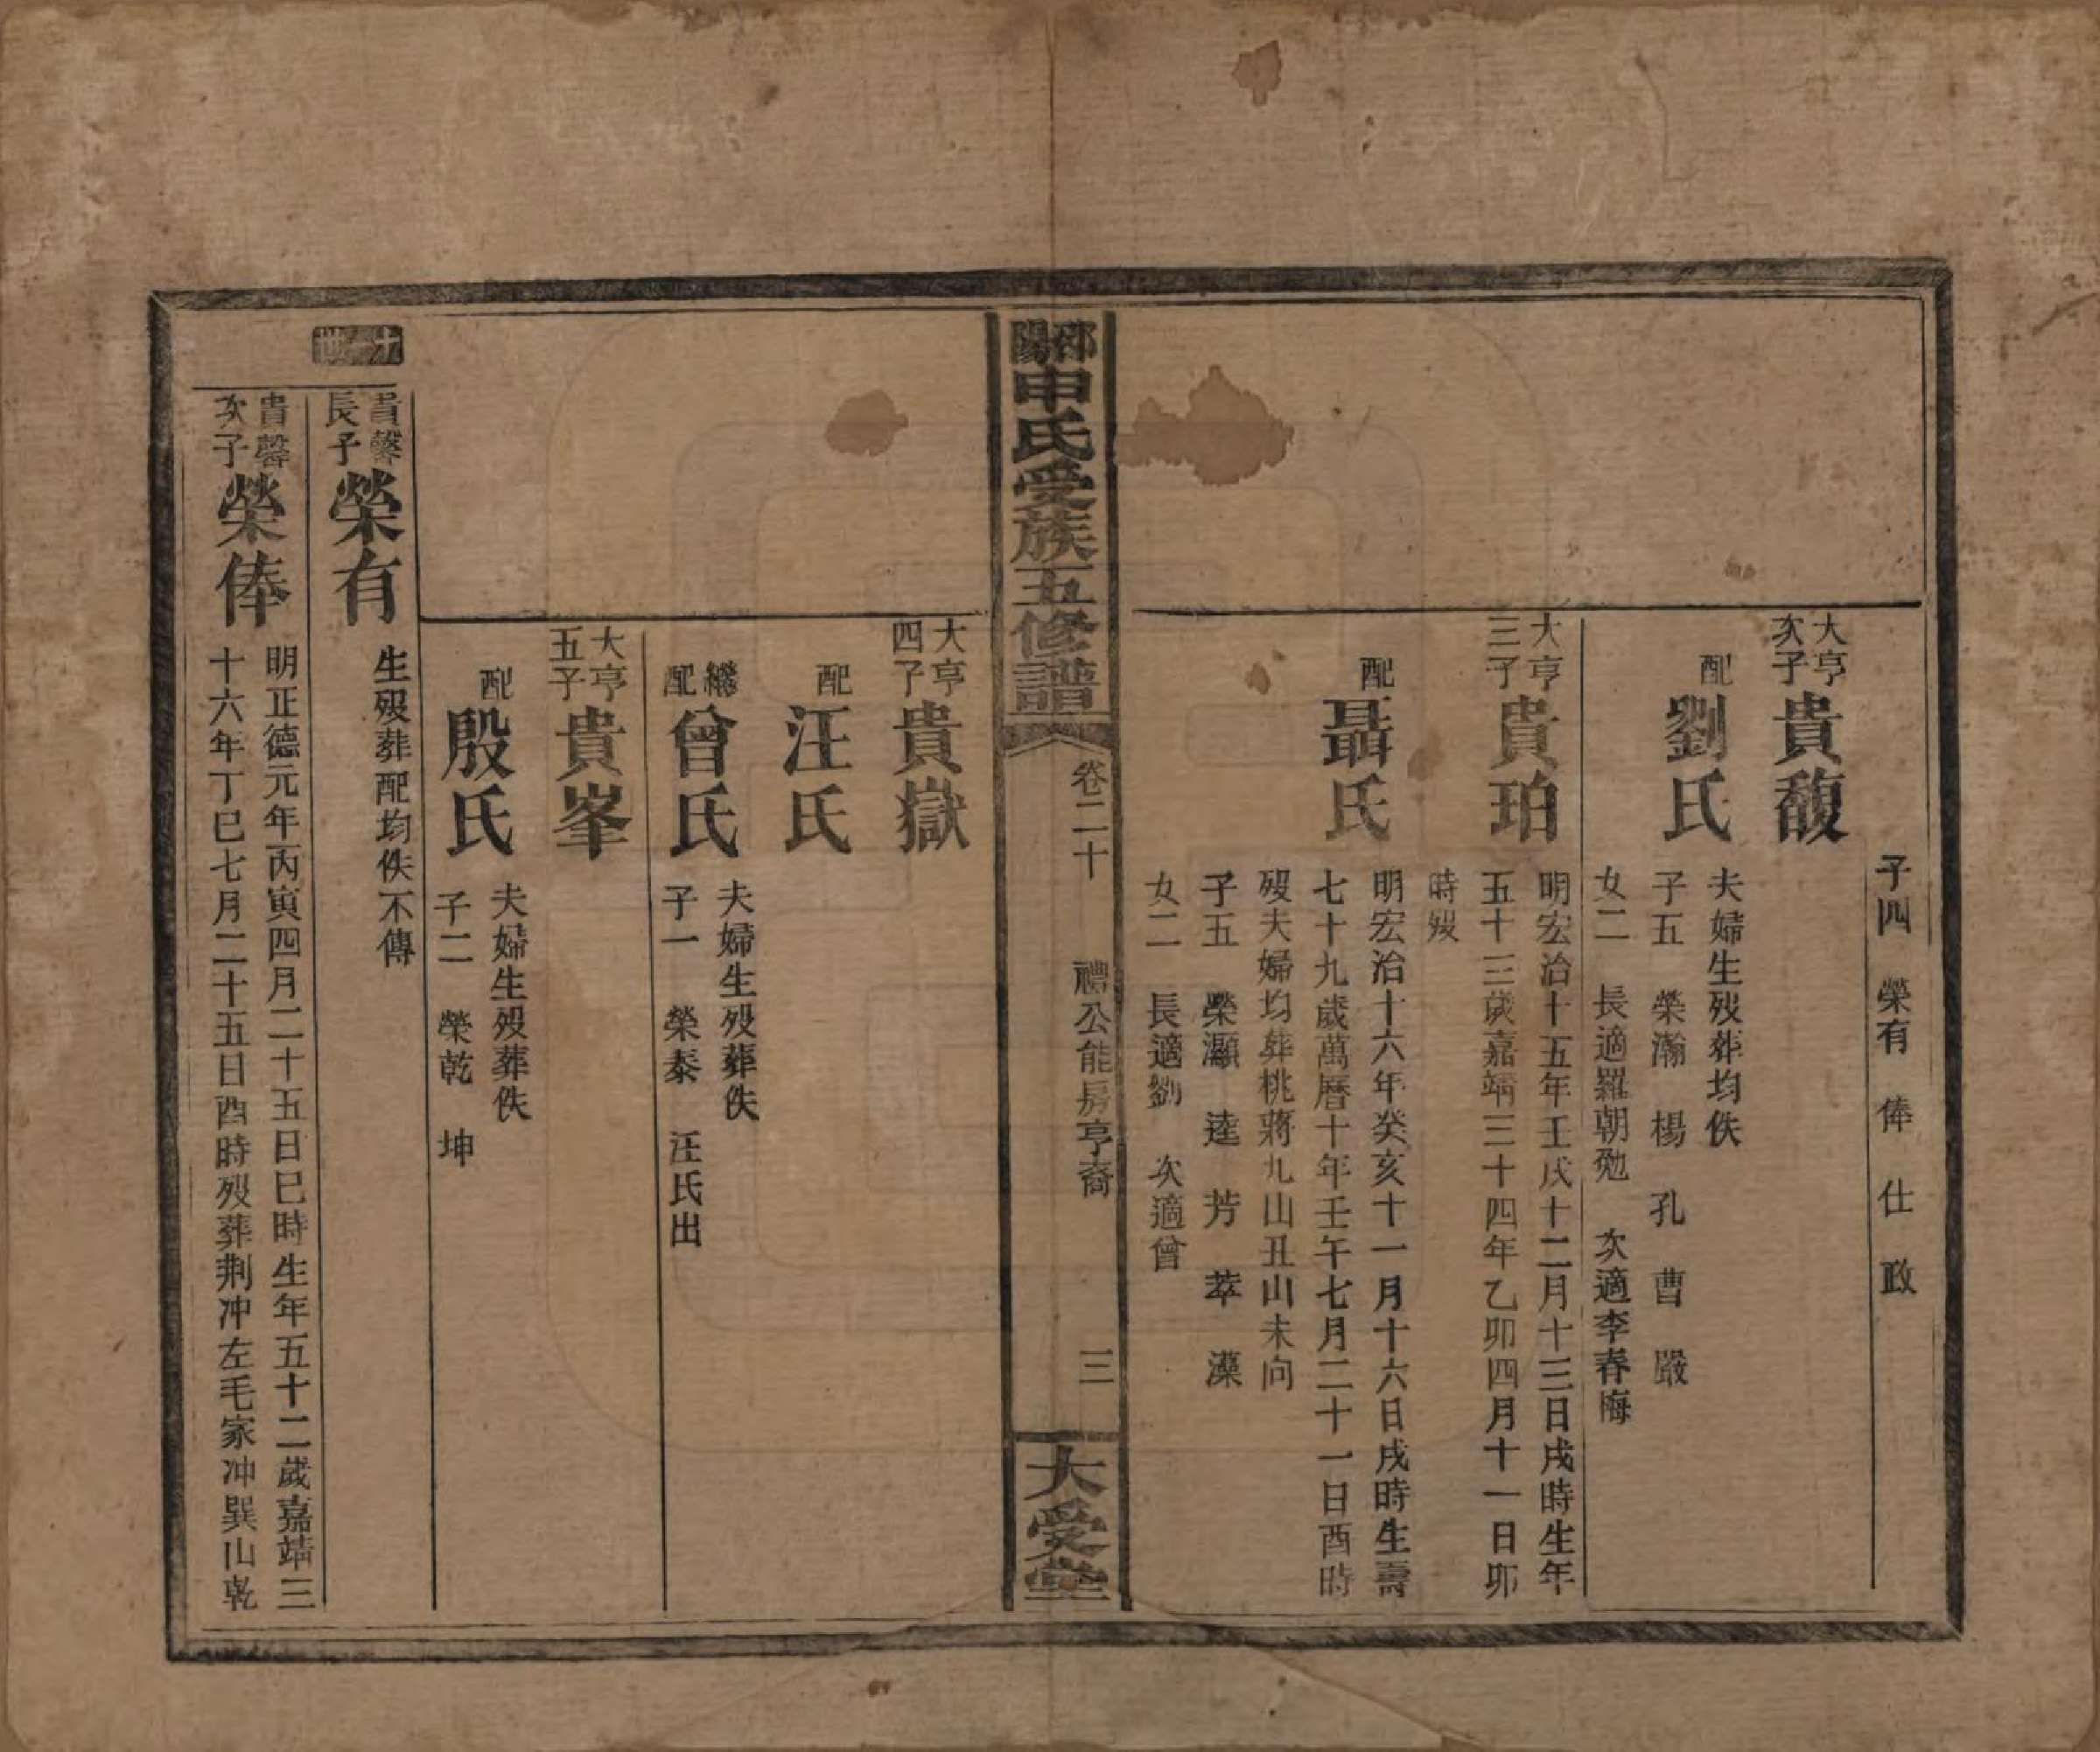 子四 榮有 俸 仕 政
大亨次子 貴馥
配 劉氏
夫婦生歿葬均佚
子五 榮瀚 楊 孔 曹 嚴
女二 長適羅朝勉 次適李春梅
大亨三子 貴珀
明宏治十五年壬戌十二月十三日戌時生年
五十三歲嘉靖三十四年乙卯四月十一日卯
時歿
配 聶氏
明宏治十六年癸亥十一月十六日戌時生壽
七十九歲萬曆十年壬午七月二十一日酉時
歿夫婦均葬桃蔣九山丑山未向
子五 榮灝 逵 芳 萃 藻
女二 長適劉 次適曾
邵陽申氏受族五修譜
卷二十 禮公能房亨裔 三
大受堂
大亨四子 貴嶽
配 汪氏
繼配 曾氏
夫婦生歿葬佚
子一 榮泰 汪氏出
大亨五子 貴峯
配 殷氏
夫婦生歿葬佚
子二 榮乾 坤
十世
貴馨長子 榮有
生歿葬配均佚不傳
貴馨次子 榮俸
明正德元年丙寅四月二十五日巳時生年五十二歲嘉靖三
十六年丁巳七月二十五日酉時歿葬荆冲左毛家冲巽山乾